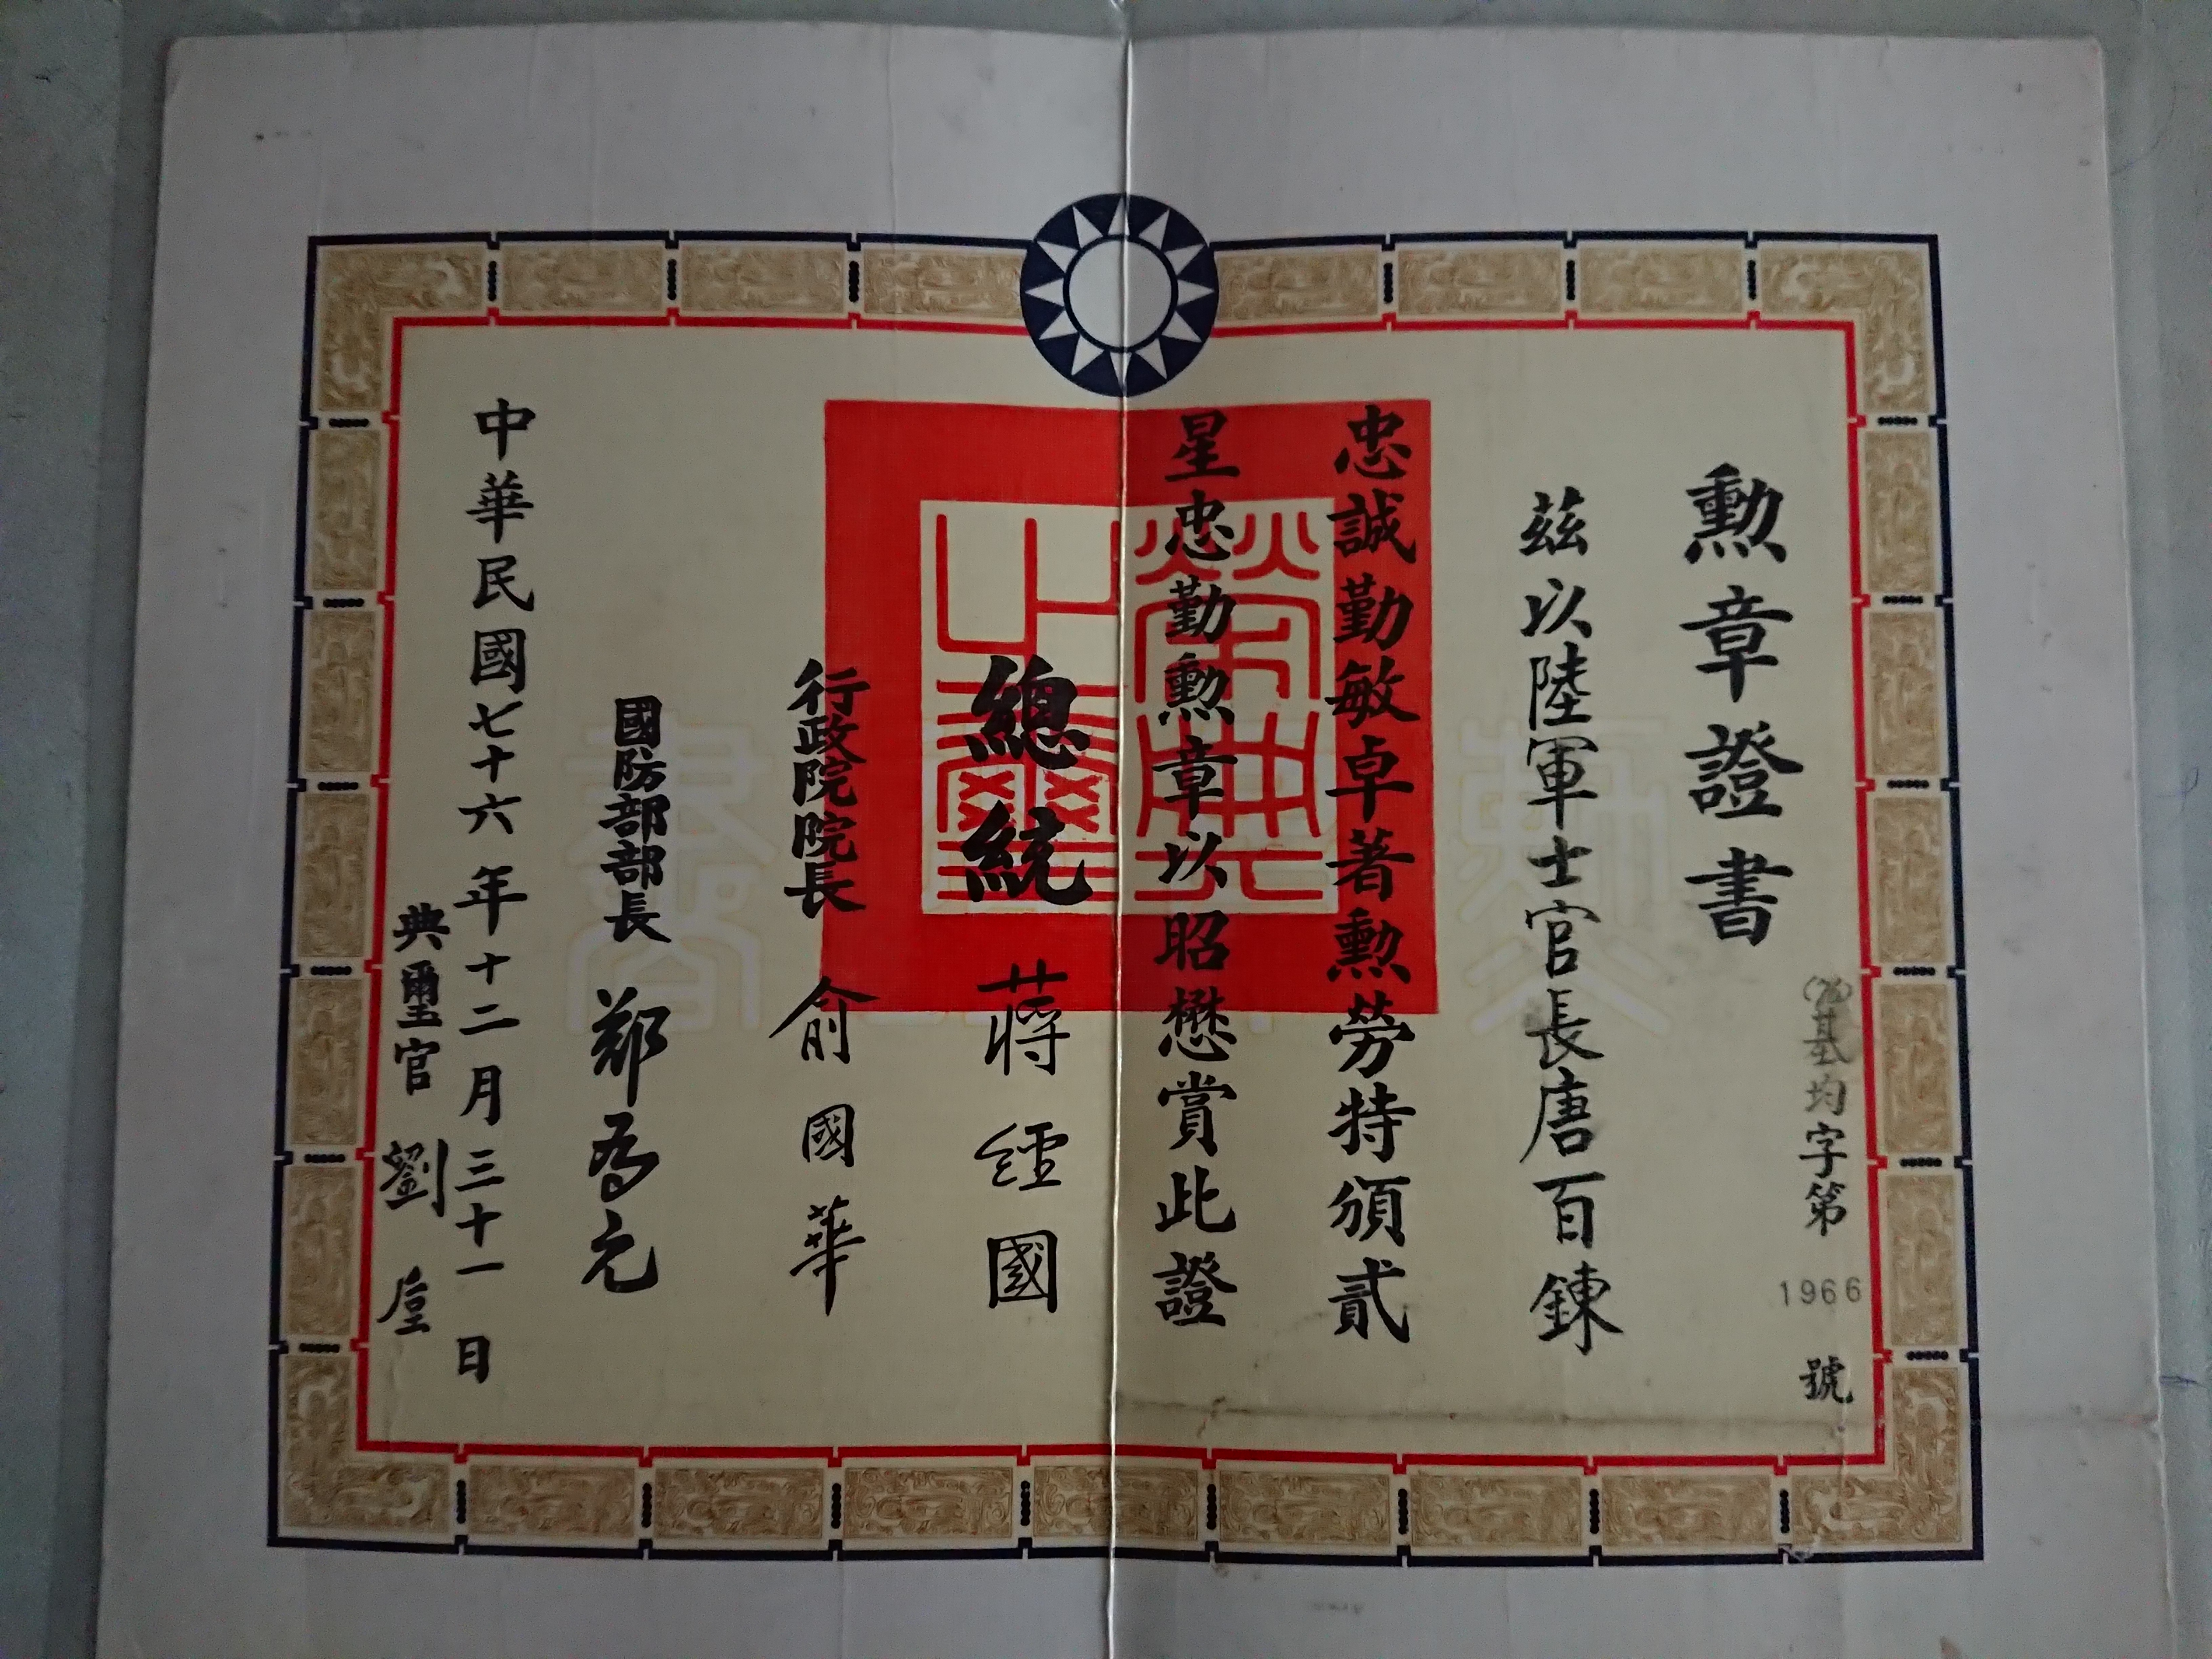 勲章證書
(76)基均字第1966號
茲以陸軍士官長唐百鍊
忠誠勤敏卓著勲勞特頒貳
星忠勤勲章以昭懋賞此證
總統 蔣經國
行政院院長 俞國華
國防部部長 鄭為元
中華民國七十六年十二月三十一日
典璽官 劉垕
榮典之璽